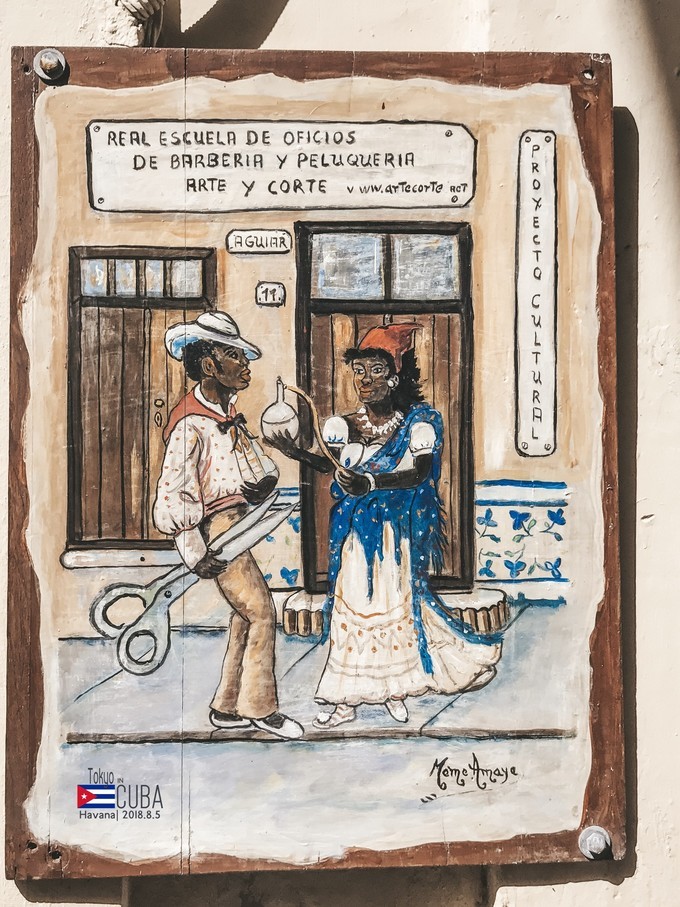 REAL ESCUELA DE OFICIOS
DE BARBERIA Y PELUQUERIA
ARTE Y CORTE www.artecorte.net
PROYECTO CULTURAL
AGUIAR
11
Meme Amaya
Tokyo IN
CUBA
Havana| 2018.8.5